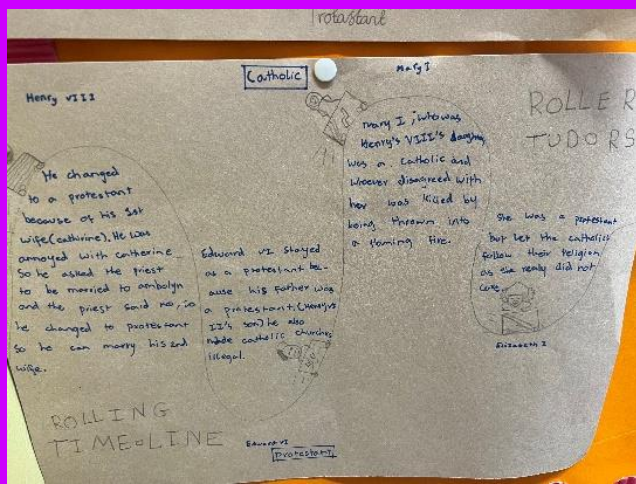 Protastant
Catholic
Mary I
Henry VIII
ROLLER
TUDORS
He changed
to a protestant
because of his 1st
wife (cathirine). He was
annoyed with catherine
So he asked the priest
to be married to ambolyn
and the priest said no, so
he changed to protestant
so he can marry his 2nd
wife.
Edward VI stayed
as a protestant bec-
ause his father was
a protestant. (Henry VI
II's son) he also
made catholic churches
illegal.
Mary I, who was
Henry's VIII's
was a catholic and
whoever disagreed with
her was killed by
being thrown into
a flaming fire.
She was a protestant
but let the catholics
follow their religion
as she really did not
care.
Elizabeth I
ROLLING
TIME-LINE
Edward VI
Protestant